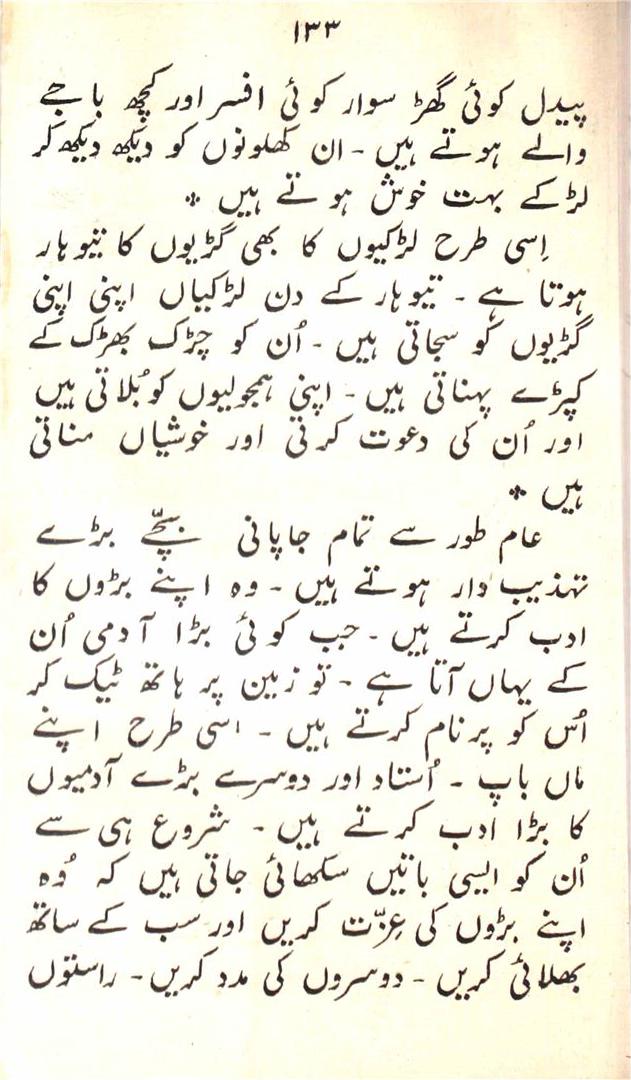 ۱۳۳
پیدل کوئی گھڑ سوار کوئی افسر اور کچھ باجے
والے ہوتے ہیں ۔ ان کھلونوں کو دیکھ دیکھ کر
لڑکے بہت خوش ہوتے ہیں *
اِسی طرح لڑکیوں کا بھی گڑیوں کا تیوہار
ہوتا ہے ۔ تیوہار کے دن لڑکیاں اپنی اپنی
گڑیوں کو سجاتی ہیں ۔ اُن کو چڑک بھڑک کے
کپڑے پہناتی ہیں ۔ اپنی ہمجولیوں کو بُلاتی ہیں
اور اُن کی دعوت کرتی اور خوشیاں مناتی
ہیں *
عام طور سے تمام جاپانی بچّے بڑے
تہذیب دار ہوتے ہیں ۔ وہ اپنے بڑوں کا
ادب کرتے ہیں ۔ جب کوئی بڑا آدمی اُن
کے یہاں آتا ہے ۔ تو زمین پر ہاتھ ٹیک کر
اُس کو پرنام کرتے ہیں ۔ اسی طرح اپنے
ماں باپ ۔ اُستاد اور دوسرے بڑے آدمیوں
کا بڑا ادب کرتے ہیں ۔ شروع ہی سے
اُن کو ایسی باتیں سکھائی جاتی ہیں کہ وُہ
اپنے بڑوں کی عِزّت کریں اور سب کے ساتھ
بھلائی کریں ۔ دوسروں کی مدد کریں ۔ راستوں